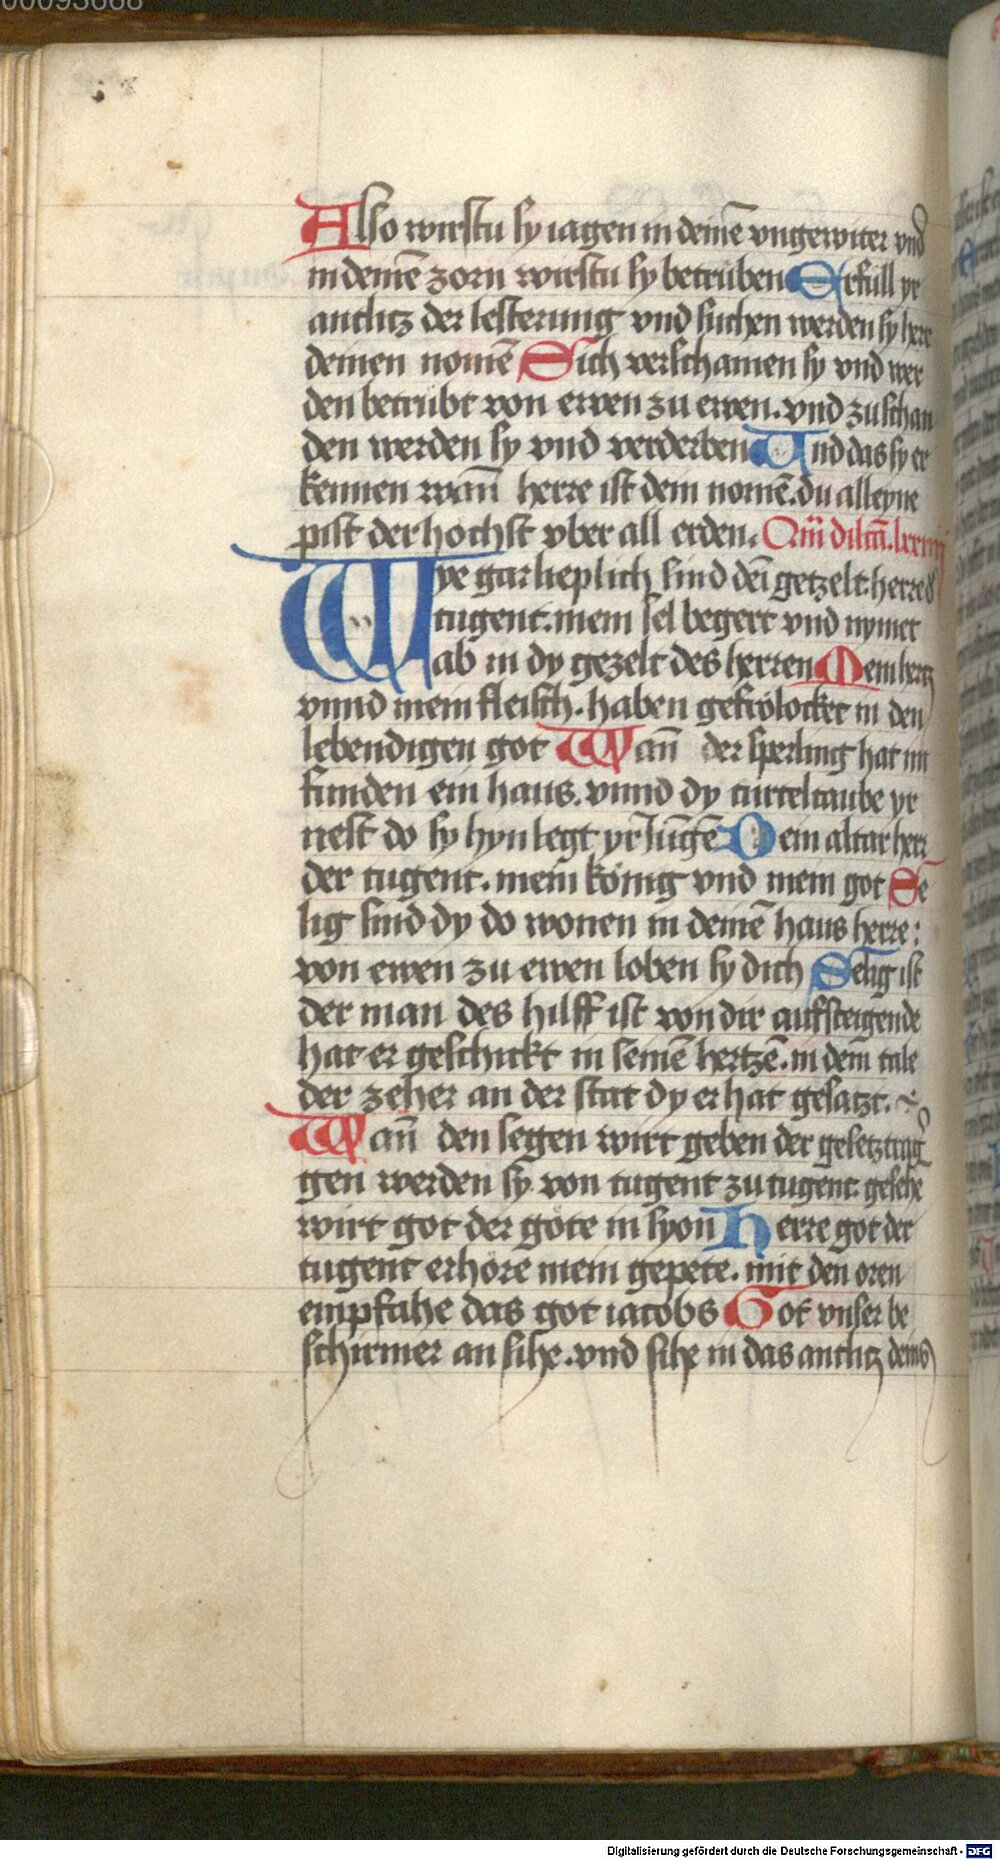 00093668
Also wirstu sy iagen in deinē vngewiter vnd
in deinē zorn wirstu sy betrüben Erfüll yr
antlitz der lesterung vnd suchen werden sy herre
deinen nomē Sich verschamen sy vnd wer
den betrübt von ewen zu ewen. vnd zu schan
den werden sy vnd verderben Und das sy er
kennen wañ herre ist dein nomē. du alleyne
pist der hochst vber all erden. Qm̄ dilcā.
Wye gar lieplich sind dei getzelt herre d
tugent. mein sel begert vnd nymet
ab in dy gezelt des herren Mein hertz
vnnd mein fleisch. haben gefrolocket in den
lebendigen got Wañ der sperling hat im
funden ein haus. vnnd dy turteltaube yr
nest do sy hyn legt yr Jungē Dein altar herr
der tugent. mein könig vnd mein got Se
lig sind dy do wonen in deinē haus herre:
von ewen zu ewen loben sy dich Selig ist
der man des hilff ist von dir aufsteigende
hat er geschickt in seinē hertzē. in dem tale
der zeher an der stat dy er hat gesatzt.
Wañ den segen wirt geben der gesetztrag
gen werden sy von tugent zu tugent. gesehē
wirt got der göte in syon Herre got der
tugent erhöre mein gepete. mit den oren
empfahe das got iacobs Got vnser be
schirmer an sihe. vnd sihe in das antlitz deins
Digitalisierung gefördert durch die Deutsche Forschungsgemeinschaft - DFG